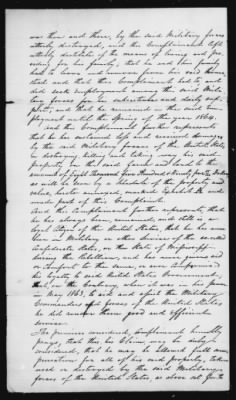 was then and there, by the said Military forces
utterly destroyed, and this Complainant left
utterly destitute of the means of living and pro-
viding for his family, that he and his family
had to leave and remove from his said home,
that and that this Complainant had to and
did seek employment among the said Mili-
tary forces for his subsistence and daily sup-
port, and that he remained in their said em-
ployment until the Spring of the year 1864.
And this Complainant further represents
that he has sustained loss and serious damage
by the said Military forces of the United States,
in destroying, killing and taking away his said
property, on his said farm and land to the
amount of Eight Thousand Four Hundred & Ninety Dollars
as will be seen by a Schedule of the property and
value, hereto annexed, marked Exhibit A and
made part of this Complaint.
And this Complainant further represents, that
he has always been, remained, and still is a
loyal Citizen of the United States, that he has never
been in Military or other service of the so called
Confederate States, or the State of Mississippi
during the Rebellion, and has never given aid
or Comfort to the same, or ever impaired
his loyalty to said United States Government,
that, on the Contrary, when it was in his power
in May 1863, to aid and assist the Military
Commanders and forces of the United States,
he did render them good and efficient
service.
The premises considered, Complainant humbly
prays, that this his Claim may be duly
considered, that he may be allowed full com-
pensation for all of his said property, taken
used or destroyed by the said Military
forces of the United States, as above set forth